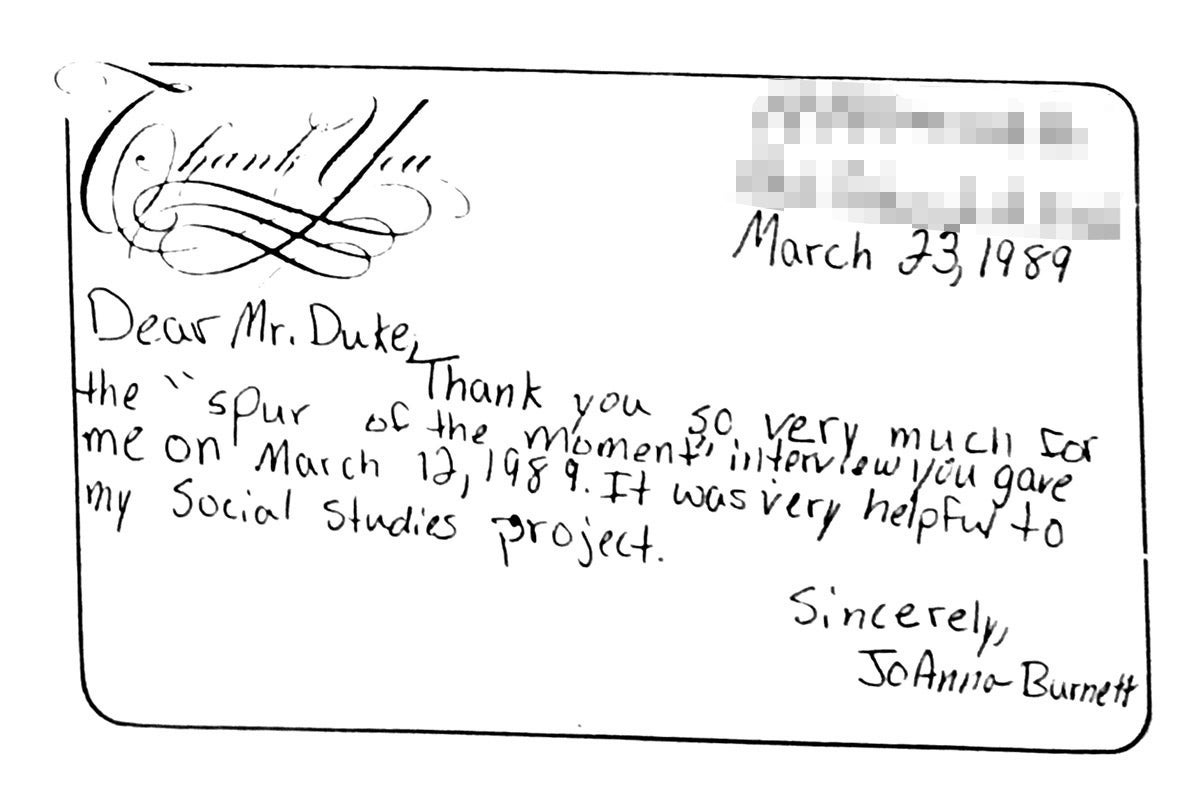 Thank You
March 23, 1989
Dear Mr. Duke,
Thank you so very much for
the "spur of the moment" interview you gave
me on March 12, 1989. It was very helpful to
my Social Studies project.
Sincerely,
JoAnna Burnett